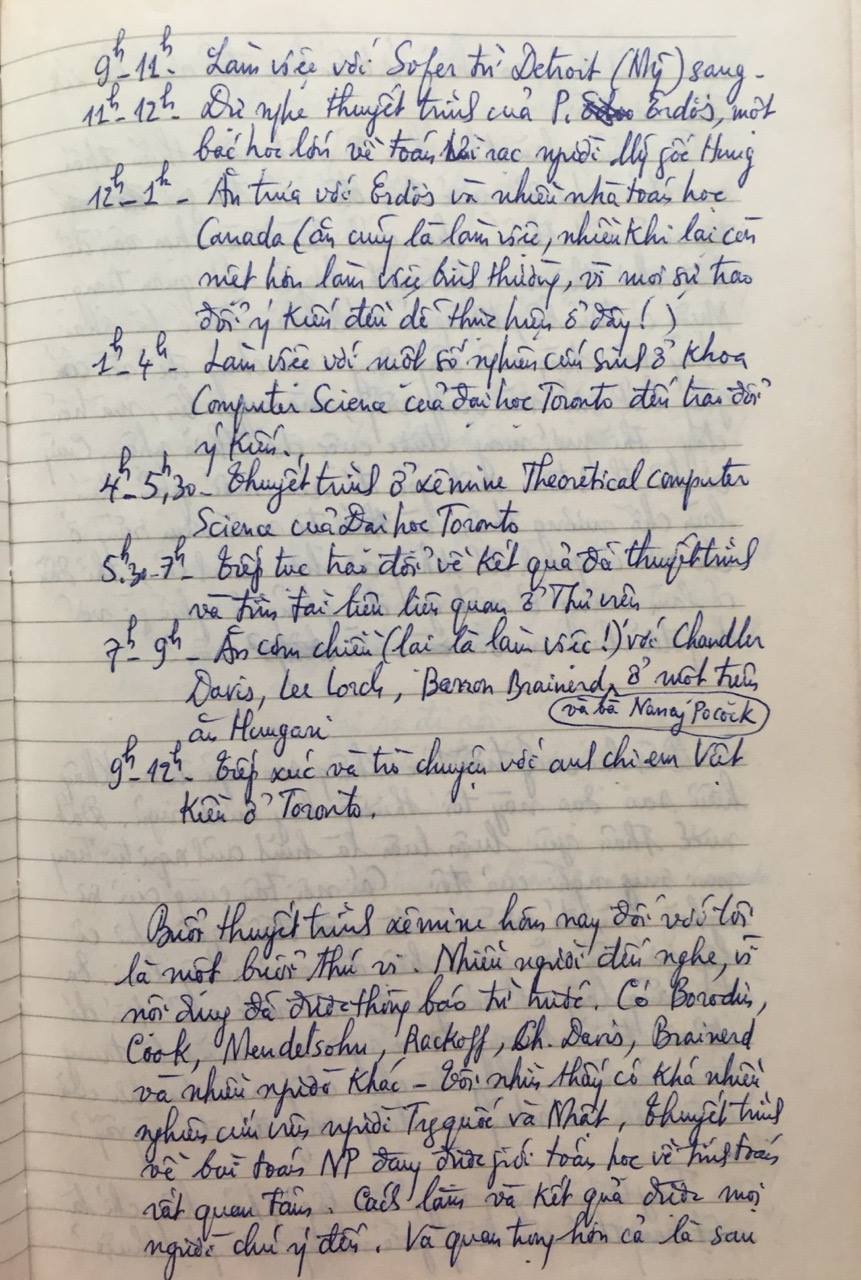 9h-11h- Làm việc với Sofer từ Detroit (Mỹ) sang -
11h-12h- Dự nghe thuyết trình của P. Erdös, một
bác học lớn về toán rời rạc người Mỹ gốc Hung
12h-1h- Ăn trưa với Erdös và nhiều nhà toán học
Canada (ăn cũng là làm việc, nhiều khi lại còn
mệt hơn làm việc bình thường, vì mọi sự trao
đổi ý kiến đều dễ thực hiện ở đây!)
1h-4h- Làm việc với một số nghiên cứu sinh ở Khoa
Computer Science của Đại học Toronto đến trao đổi
ý kiến.
4h-5h,30- Thuyết trình ở xêmine Theoretical Computer
Science của Đại học Toronto
5h.30-7h- Tiếp tục trao đổi về kết quả đã thuyết trình
và tìm tài liệu liên quan ở Thư viện
7h-9h- Ăn cơm chiều (lại là làm việc!) với Chandler
Davis, Lee Lorch, Barron Brainerd, ở một tiệm
và bà Nancy Pocock
ăn Hungari
9h-12h- Tiếp xúc và trò chuyện với anh chị em Việt
Kiều ở Toronto.
Buổi thuyết trình xêmine hôm nay đối với tôi
là một buổi thú vị. Nhiều người đến nghe, vì
nội dung đã được thông báo từ trước. Có Borodin,
Cook, Mendelsohn, Rackoff, Ch. Davis, Brainerd
và nhiều người khác - Tôi nhìn thấy có khá nhiều
nghiên cứu viên người Tg quốc và Nhật, Thuyết trình
về bài toán NP đang được giới toán học về tính toán
rất quan tâm. Cách làm và kết quả được mọi
người chú ý đến. Và quan trọng hơn cả là sau